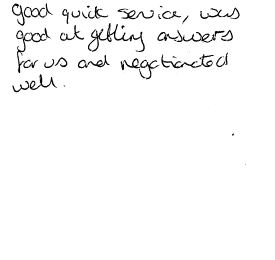 Good quick service, was
good at getting answers
for us and negotiated
well.